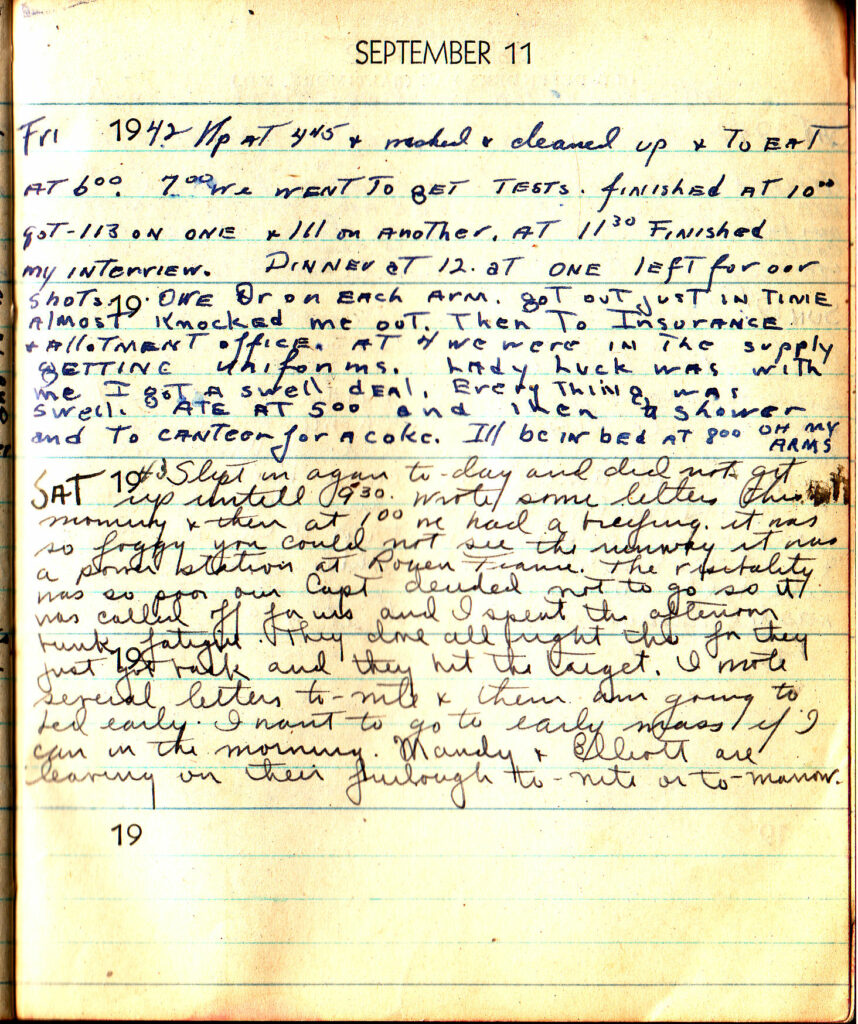 SEPTEMBER 11
Fri 1942 Up AT 4 45 & washed & cleaned up & To EAT
AT 6 00. 7 00 we wENT To gET TESTS. finished AT 10 00
goT-113 ON ONE & 111 on Another. AT 11 30 Finished
my INTERVIEW. DINNEr aT 12. aT ONE left for our
shots. 19 ONE Or on EAch ARM. goT ouT just IN TIME
Almost Knocked me ouT. Then To InsurANCE
& AlloTMENT officE. AT 4 we were IN The supply
gETTING uniforms. LAdy Luck was with
me I goT A swell deal. EveryThing was
swell. ATE AT 5 00 and Then a shower
and To CANTEEN for a coke. Ill be in bed AT 8 00 OH MY
ARMS
SAT 1943 Slept in again to-day and did not get
up untill 9 30. wrote some letters this
morning & then at 1 00 we had a breifing. it was
so foggy you could not see the runway it was
a power station at Rouen France. The visitality
was so poor our Capt decided not to go so it
was called off for us and I spent the afternoon
bunk fatigue. They done all fright tho for they
19 just got back and they hit the target. I wrote
several letters to-nite & them am going to
bed early. I want to go to early mass if I
can in the morning. Mandy & Elliott are
leaving on their furlough to-nite or to-morrow.
19